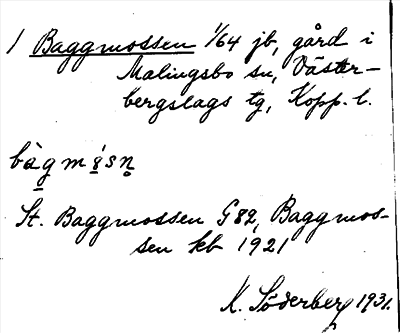 1 Baggmossen 1/64 jb, gård i
Malingsbo sn, Väster-
bergslags tg, Kopp. l.
bàgmò̤sn̥
St. Baggmossen G82, Baggmos-
sen kb 1921
K. Söderberg 1931.